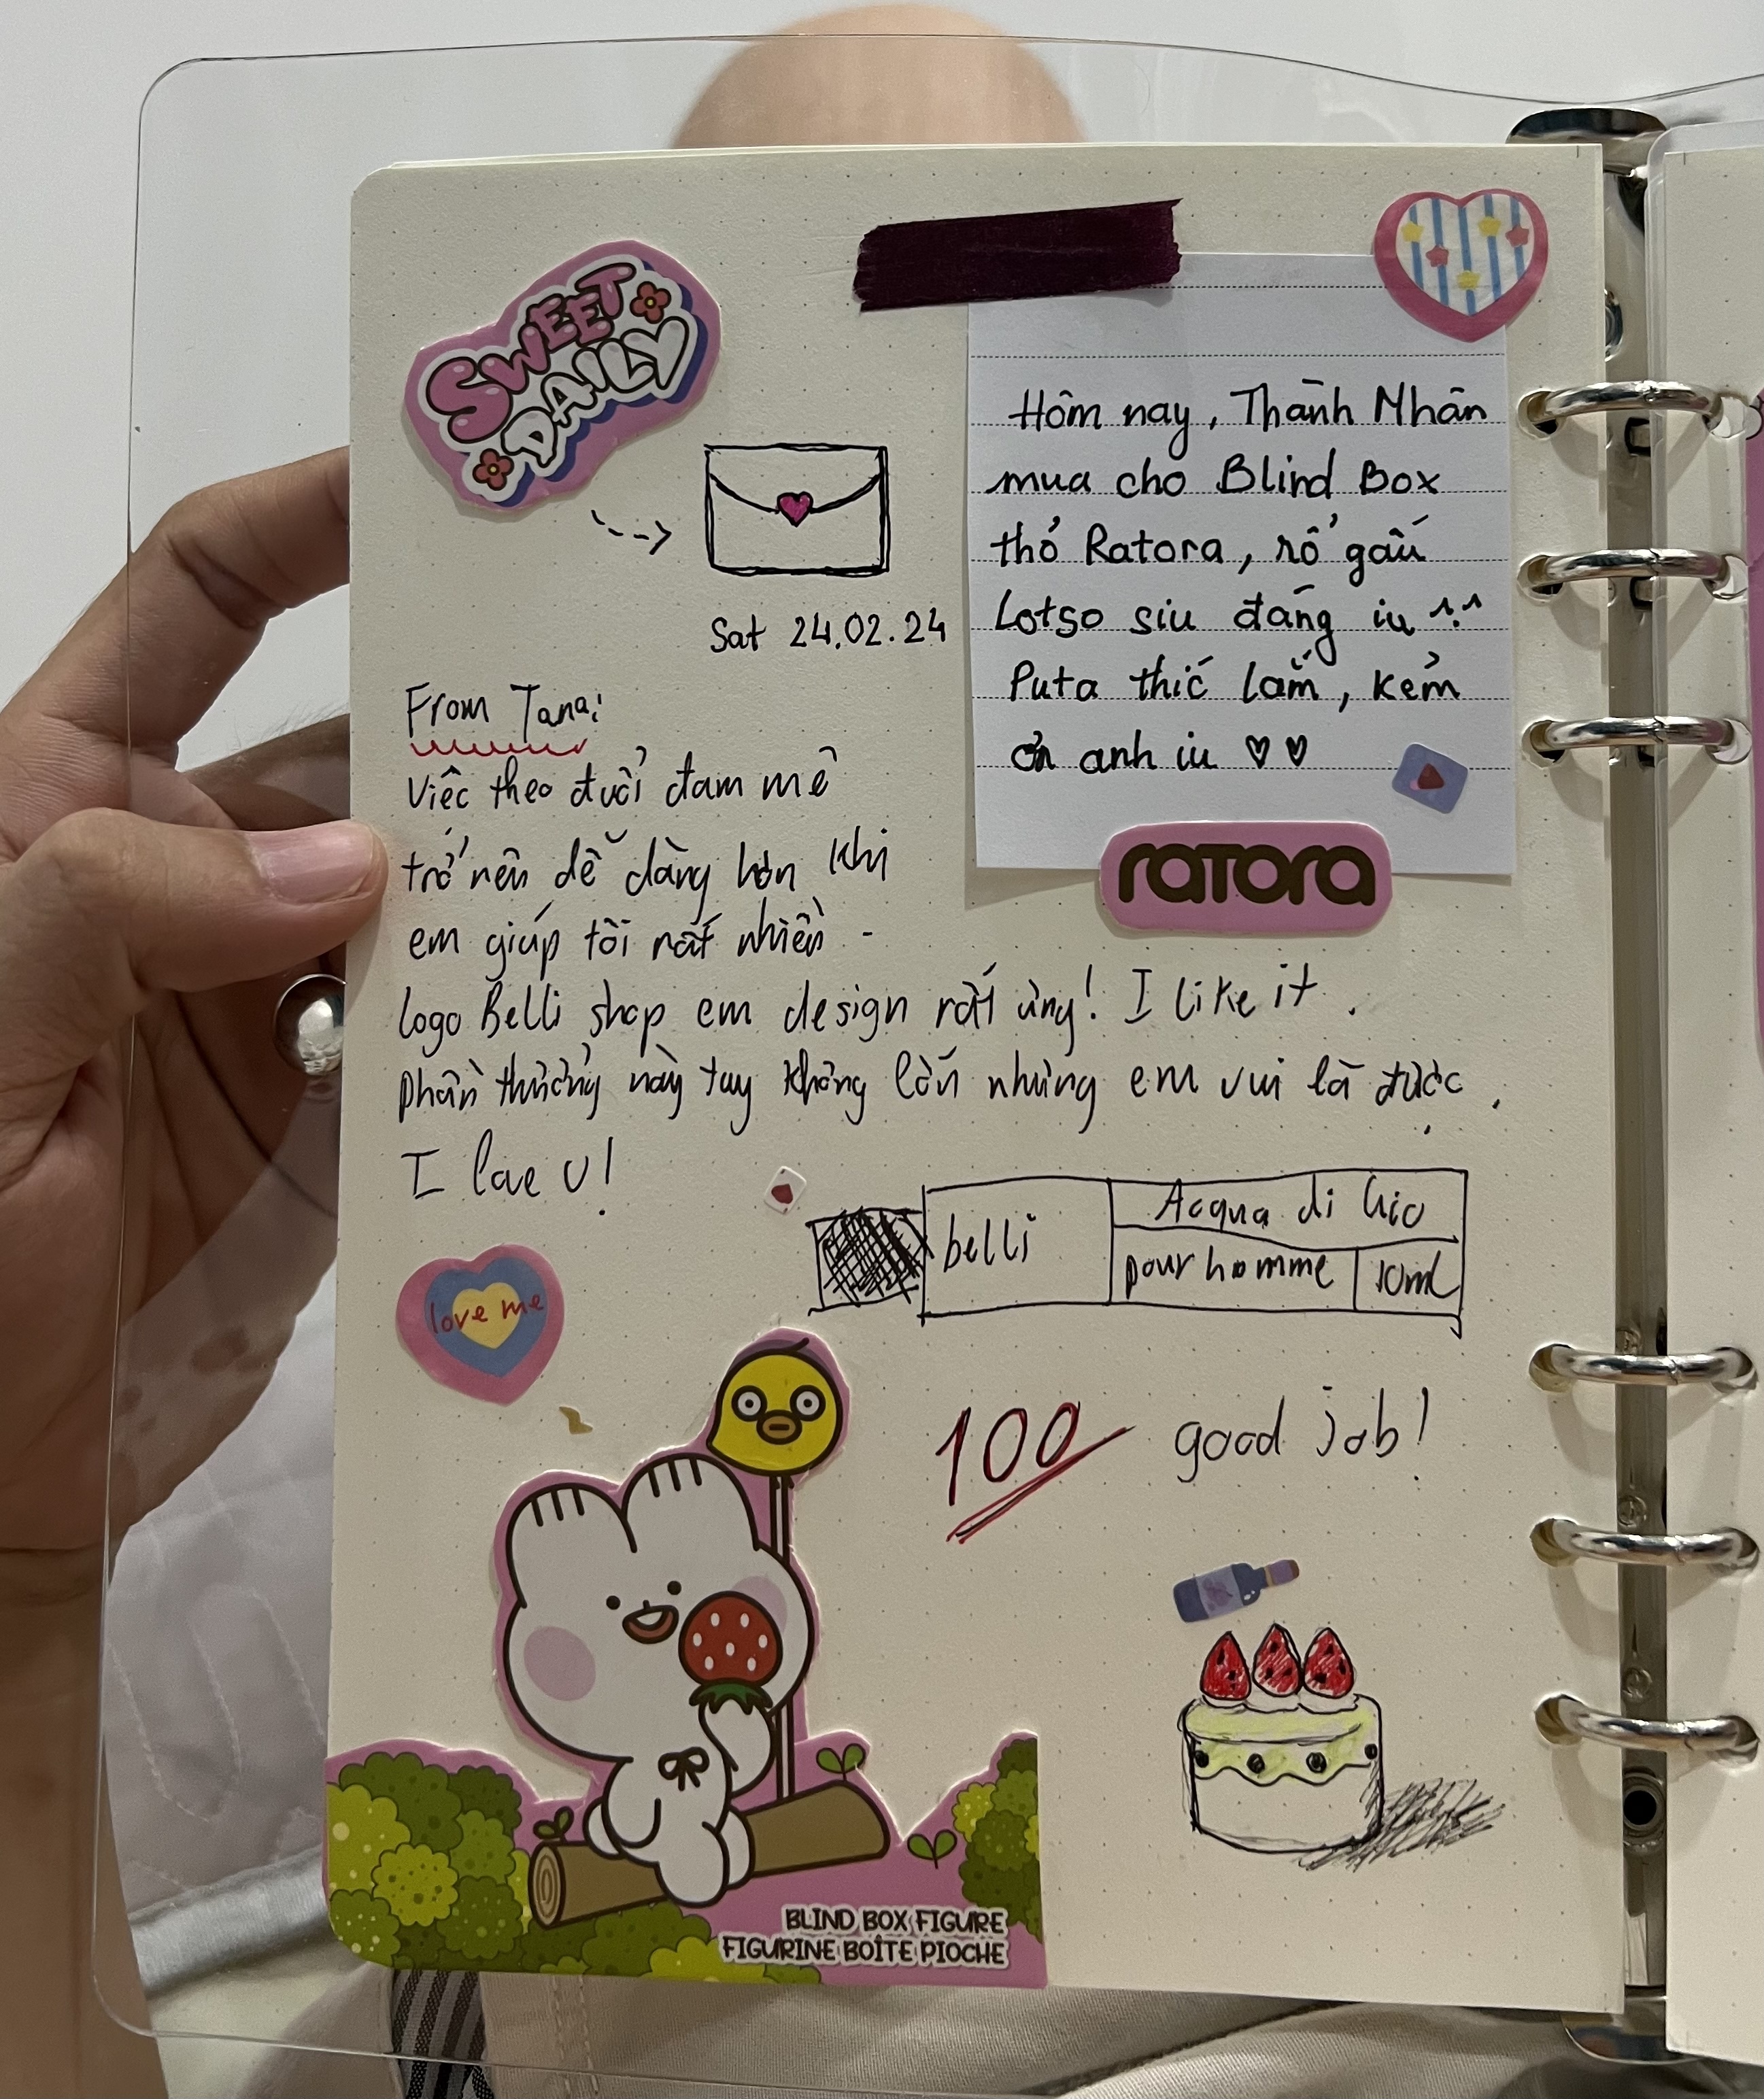 SWEET
DAILY
Hôm nay, Thành Nhân
mua cho Blind Box
thỏ Ratora, rổ gấu
Lotso siu đáng iu ^.^
Puta thíc lắm, kẻm
ơn anh iu ♡♡
ratora
Sat 24.02.24
From Tana:
Việc theo đuổi đam mê
trở nên dễ dàng hơn khi
em giúp tôi rất nhiều -
logo Belli shop em design rất ưng! I like it.
phần thưởng này tuy không lớn nhưng em vui là được.
I love U!
belli
Acqua di Gio
pour homme
10ml
love me
100
good job!
BLIND BOX FIGURE
FIGURINE BOÎTE PIOCHE